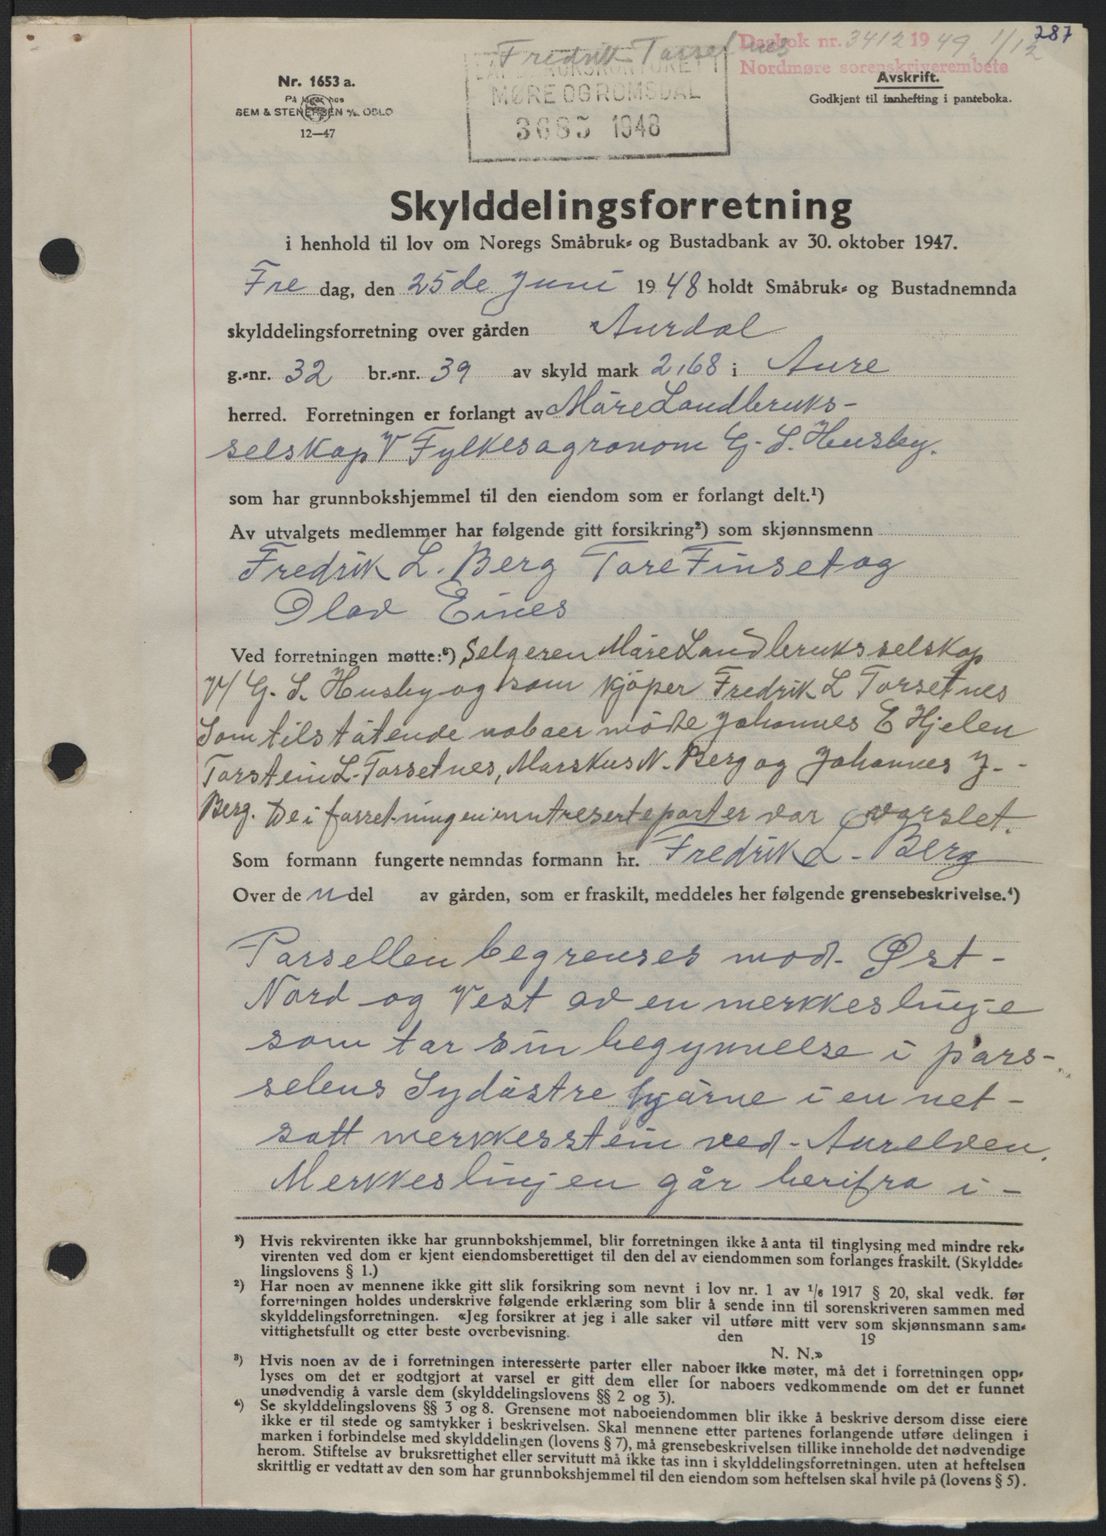 287
Fredrik Torsetnes
Dagbok nr. 3412 1949 1/12
Nordmøre sorenskriverembete
MØRE OG ROMSDAL
3695 1948
Nr. 1653 a.
SEM & STENERSEN A/s. OSLO
12—47
Avskrift.
Godkjent til innhefting i panteboka.
Skylddelingsforretning
i henhold til lov om Noregs Småbruk- og Bustadbank av 30. oktober 1947.
Fre dag, den 25de Juni 1948 holdt Småbruk- og Bustadnemnda
skylddelingsforretning over gården Aurdal
g.-nr. 32 br.-nr. 39 av skyld mark 2,68 i Aure
herred. Forretningen er forlangt av Møre Landbruks-
selskap V Fylkesagronom G. S. Husby.
som har grunnbokshjemmel til den eiendom som er forlangt delt.¹)
Av utvalgets medlemmer har følgende gitt forsikring²) som skjønnsmenn
Fredrik L. Berg Tore Finset og
Olav Eines
Ved forretningen møtte:⁶) Selgeren Møre Landbruksselskap
V/ G. S. Husby og som kjøper Fredrik L Torsetnes
Som tilstøtende naboer møtte Johannes E Hjelen
Torstein L. Torsetnes, Markus N. Berg og Johannes J. -
Berg. De i forretningen inntreserte parter var varslet.
Som formann fungerte nemndas formann hr. Fredrik L. Berg
Over den del av gården, som er fraskilt, meddeles her følgende grensebeskrivelse.⁴)
Parsellen begrenses mod- Øst -
Nord og Vest av en merkkeslinje
som tar sin begynnelse i pars-
selens Sydøstre hjørne i en net-
satt merkkesstein ved- Aurelven.
Merkkeslinjen går herifra i -
¹) Hvis rekvirenten ikke har grunnbokshjemmel, blir forretningen ikke å anta til tinglysing med mindre rek-
virenten ved dom er kjent eiendomsberettiget til den del av eiendommen som forlanges fraskilt. (Skyldde-
lingslovens § 1.)
²) Har noen av mennene ikke gitt slik forsikring som nevnt i lov nr. 1 av 1/6 1917 § 20, skal vedk. før
forretningen holdes underskrive følgende erklæring som blir å sende inn til sorenskriveren sammen med
skylddelingsforretningen. «Jeg forsikrer at jeg i alle saker vil utføre mitt verv som skjønnsmann sam-
vittighetsfullt og etter beste overbevisning. den 19
N. N.»
³) Hvis noen av de i forretningen interesserte parter eller naboer ikke møter, må det i forretningen opp-
lyses om det er godtgjort at varsel er gitt dem eller for naboers vedkommende om det er funnet
unødvendig å varsle dem (skylddelingslovens §§ 2 og 3).
⁴) Se skylddelingslovens §§ 3 og 8. Grensene mot naboeiendommen blir ikke å beskrive dersom disse eiere
ikke er til stede og samtykker i beskrivelsen. Skal mennene etter partenes forlangende utføre delingen i
marken i forbindelse med skylddelingen (lovens § 7), må grensebeskrivelsen tillike inneholde det nødvendige
herom. Stiftelse av bruksrettighet eller servitutt må ikke tas inn i skylddelingsforretningen, uten at heftelsen
skrittlig er vedtatt av den som har grunnbokshjemmel til den eiendom som heftelsen skal hvile på (lovens § 5).